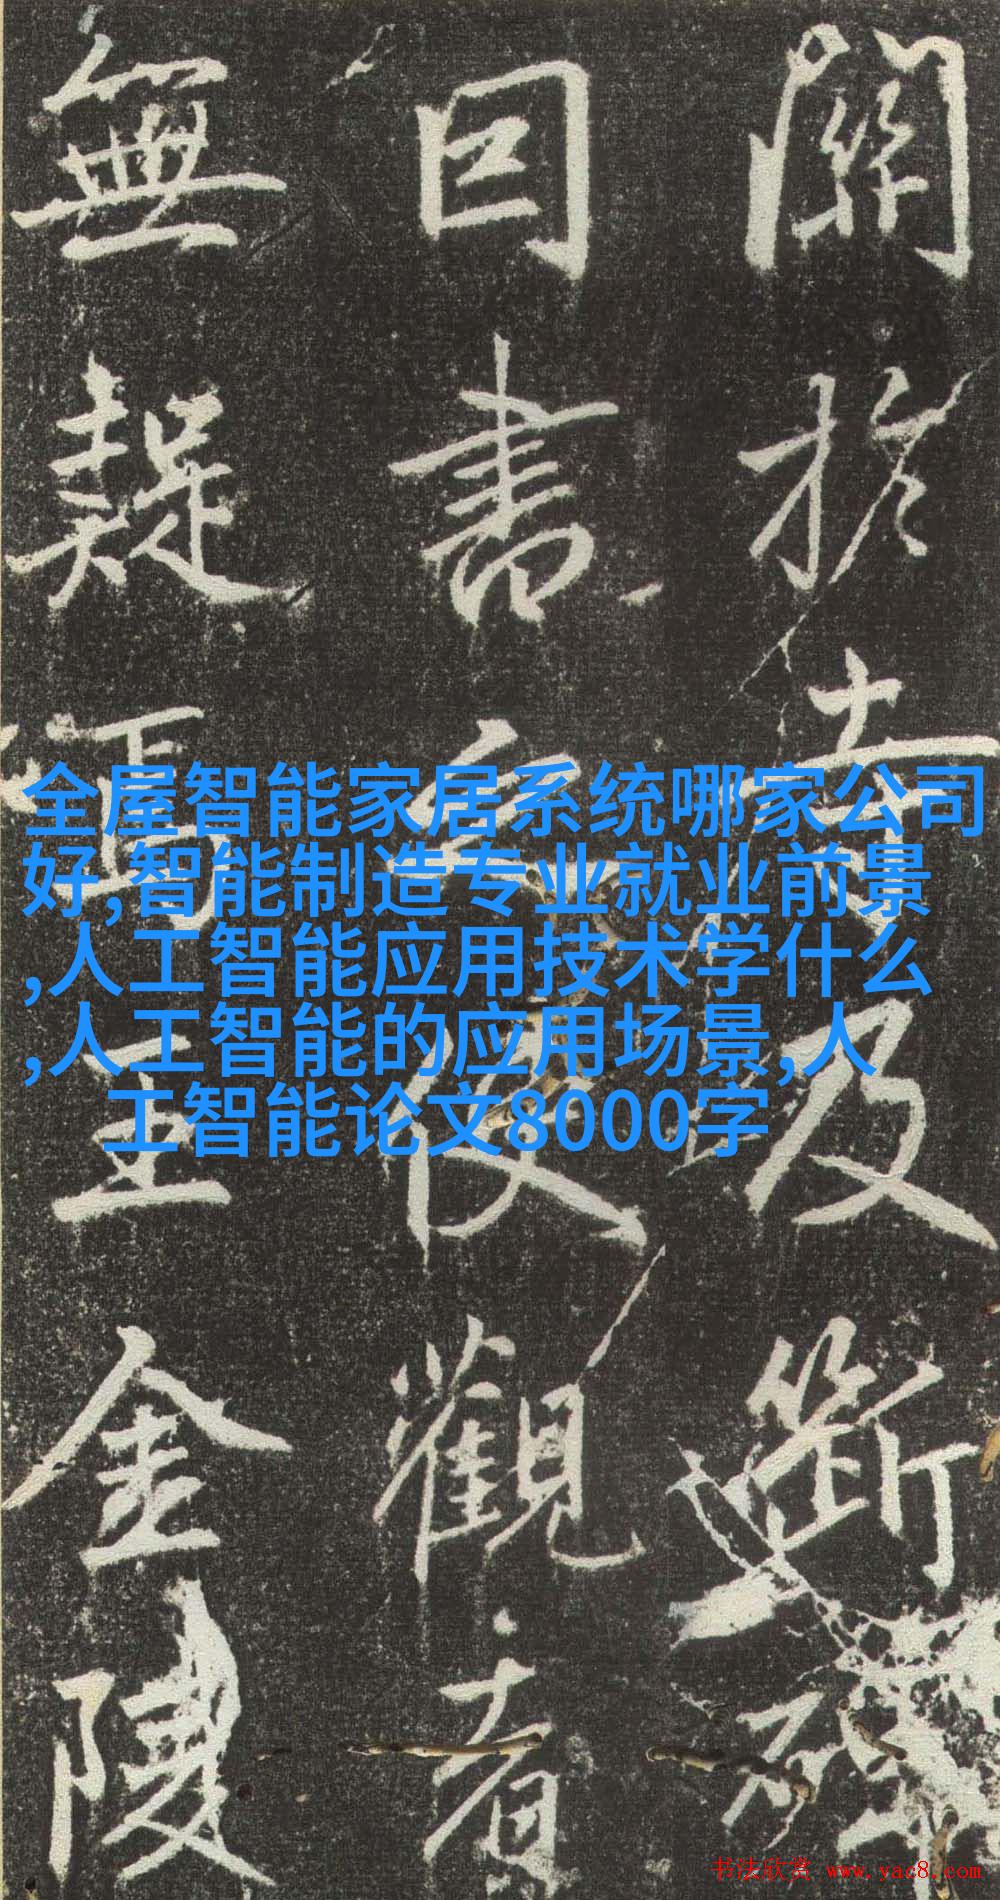 關於及斷
日書使觀者
無疑焉王金陵
全屋智能家居系统哪家公司
好,智能制造专业就业前景
,人工智能应用技术学什么
,人工智能的应用场景,人
工智能论文8000字
书法欣赏 www.yac8.com